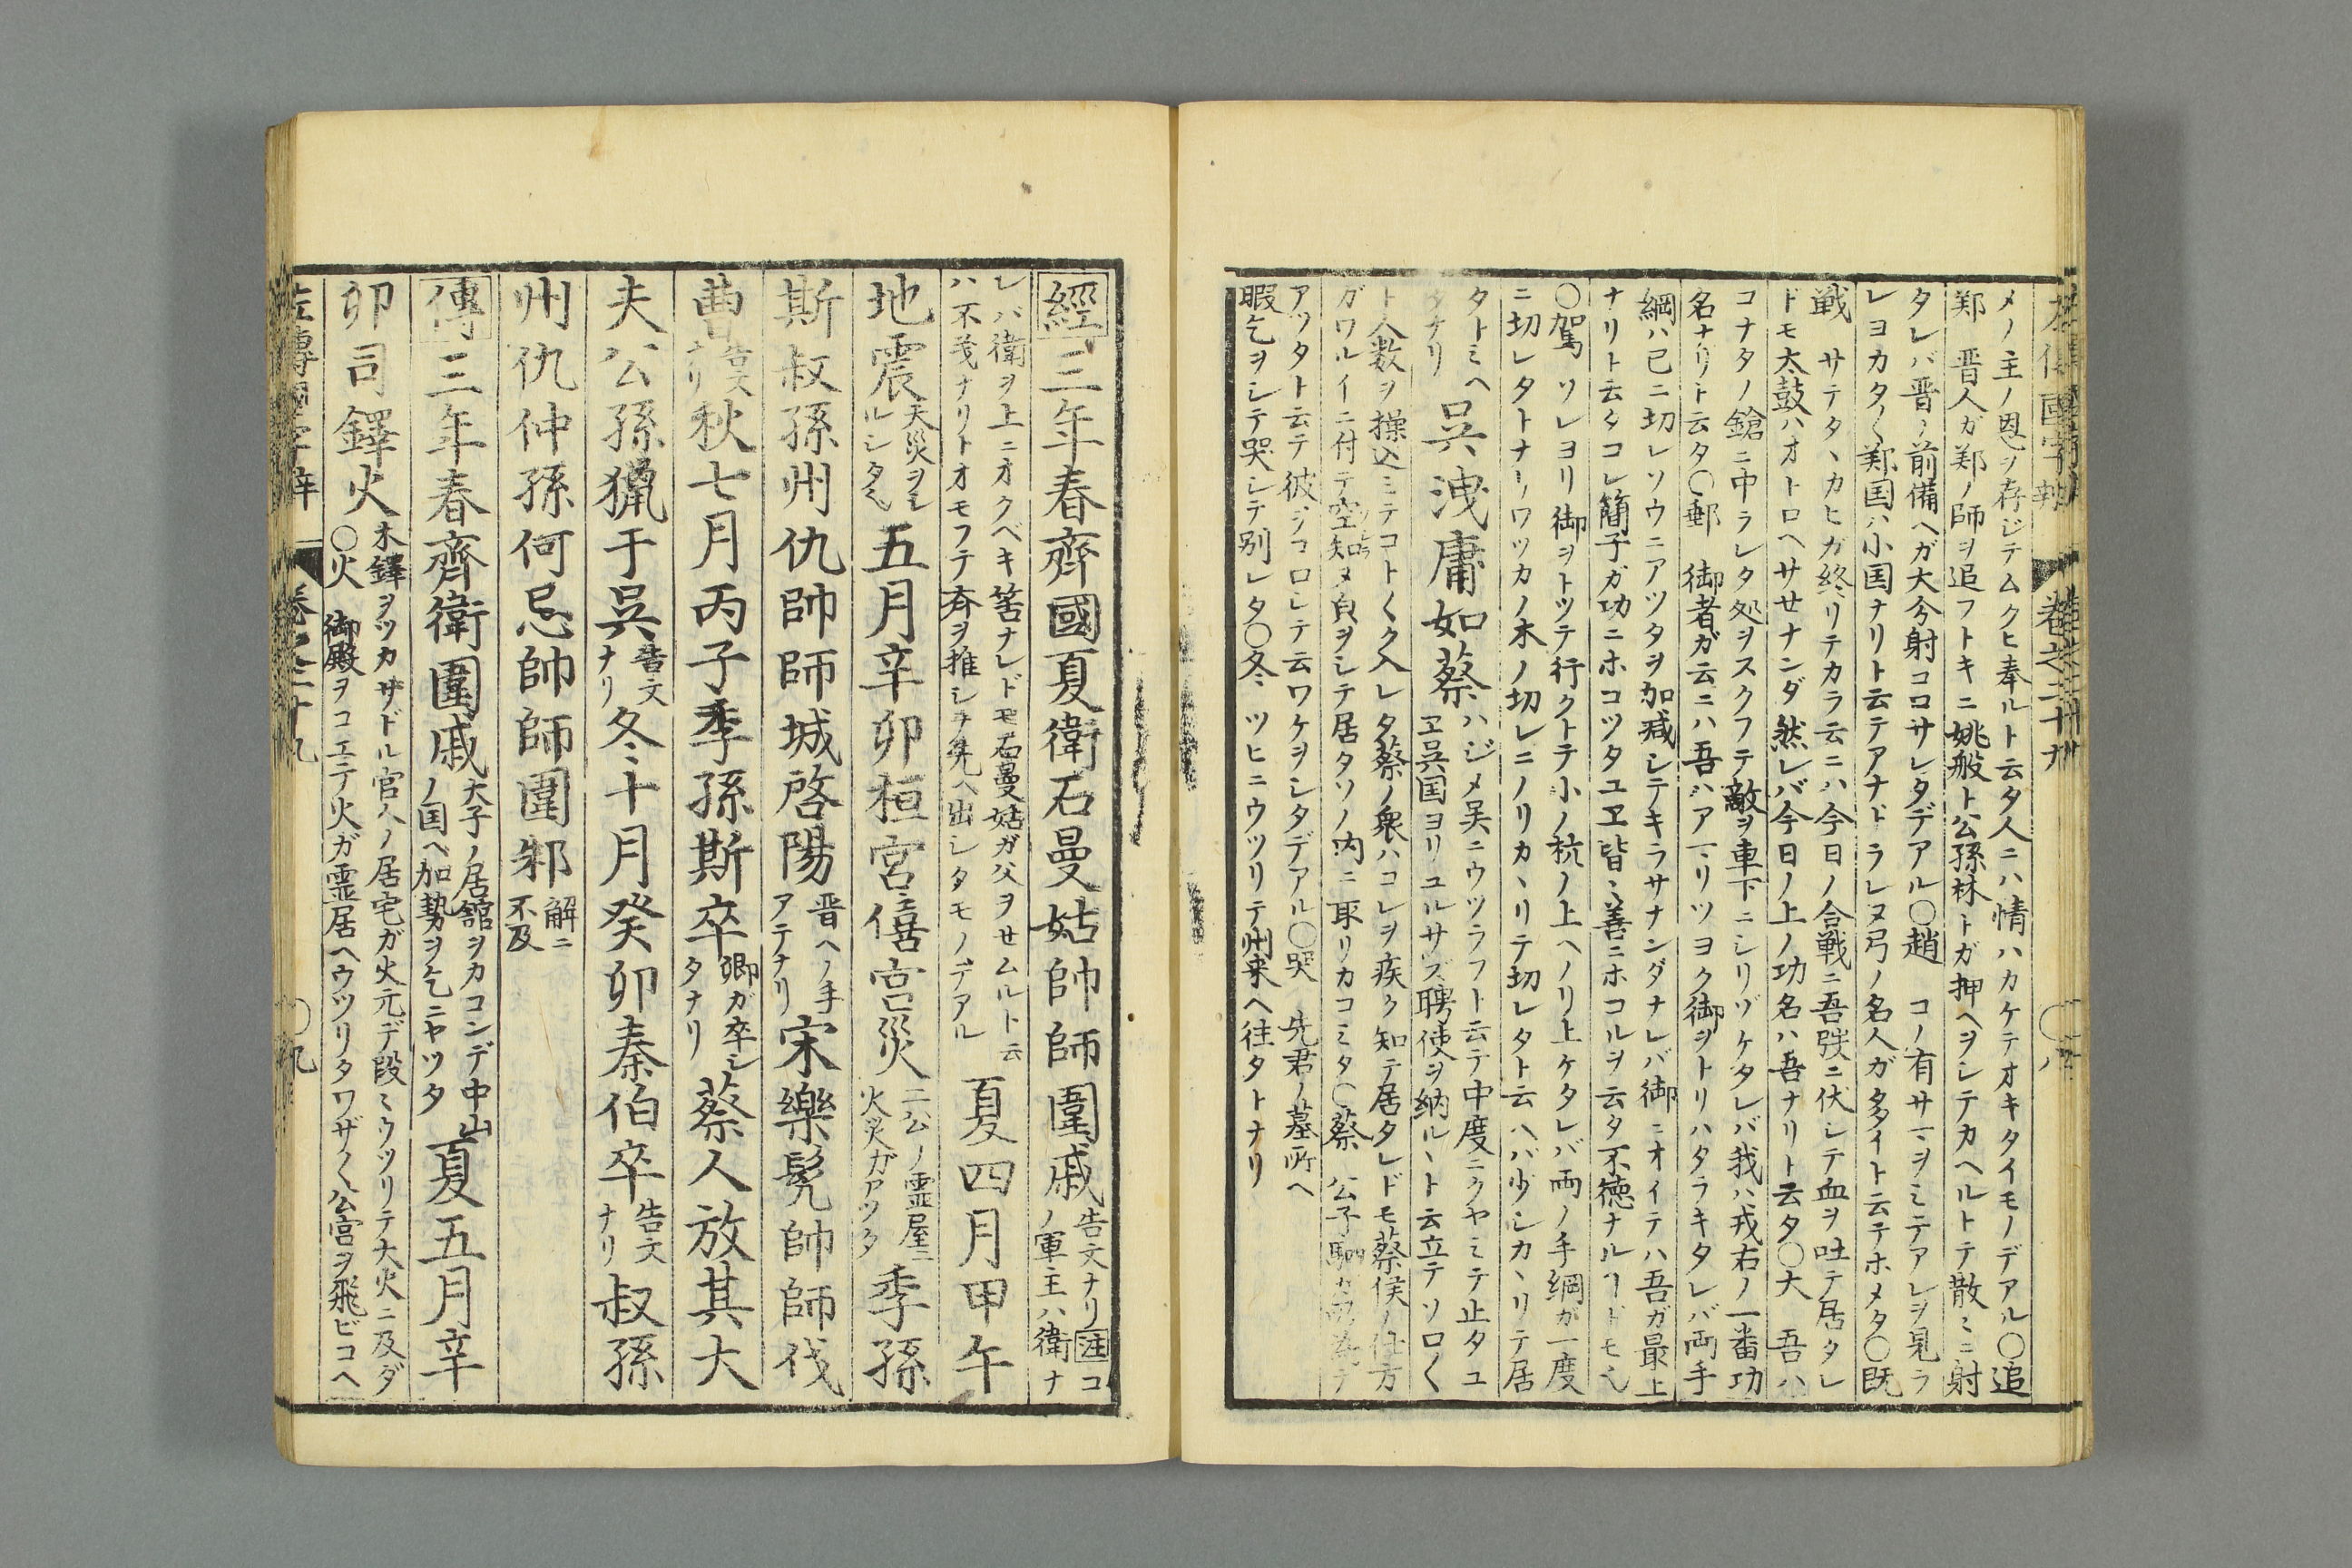 メノ主ノ恩ヲ存ジテムクヒ奉ルト云タ人ニハ情ハカケテオキタイモノデアル〇追
鄭　晋人ガ鄭ノ師ヲ追フトキニ姚般ト公孫林トガ押ヘヲシテカヘルトテ散ミニ射
タレバ晋ノ前備ヘガ大分射コロサレタデアル〇趙　コノ有サマヲミテアレヲ見ラ
レヨカタ〱鄭国ハ小国ナリト云テアナドラレヌ弓ノ名人ガ多イト云テホメタ〇既
戦　サテタヽカヒガ終リテカラ云ニハ今日ノ合戦ニ吾弢ニ伏シテ血ヲ吐テ居タレ
ドモ太鼓ハオトロヘサセナンダ然レバ今日ノ上ノ功名ハ吾ナリト云タ〇大　吾ハ
コナタノ鎗ニ中ラレタ処ヲスクフテ敵ヲ車下ニシリゾケタレバ我ハ戎右ノ一番功
名ナリト云タ〇郵　御者ガ云ニハ吾ハアマリツヨク御ヲトリハタラキタレバ両手
綱ハ已ニ切レソウニアツタヲ加减シテキラサナンダナレバ御ニオイテハ吾ガ最上
ナリト云タコレ簡子ガ功ニホコツタユヱ皆〻善ニホコルヲ云タ不徳ナルヿドモ也
〇駕　ソレヨリ御ヲトツテ行クトテ小ノ杭ノ上ヘノリ上ケタレバ両ノ手綱ガ一度
ニ切レタトナリワツカノ木ノ切レニノリカヽリテ切レタト云ヘバ少シカヽリテ居
タトミヘタナリ　吳洩庸如蔡　ハジメ吴ニウツラフト云テ中度ニクヤミテ止タユヱ呉国ヨリユルサズ聘使ヲ納ルヽト云立テソロ〱
ト人数ヲ操込ミテコト〱ク入レタ蔡ノ衆ハコレヲ疾ク知テ居タレドモ蔡侯ノ仕方
ガワルイニ付テ空知ヌ㒵ヲシテ居タソノ内ニ取リカコミタ〇蔡　公子駟
アツタト云テ彼ヲコロシテ云ワケヲシタデアル〇哭　先君ノ墓所ヘ
暇乞ヲシテ哭シテ別レタ〇冬　ツヒニウツリテ州来ヘ往タトナリ
經三年春齊國夏衛石曼姑帥師圍戚　告文ナリ注コノ軍主ハ衛ナ
レバ衛ヲ上ニオクベキ筈ナレドモ石曼姑ガ父ヲせムルト云ハ不義ナリトオモフテ斉ヲ推シテ先ヘ出シタモノデアル　夏四月甲午
地震　天災ヲシルシタ也　五月辛卯桓宮僖宮災　二公ノ霊屋ニ火災ガアツタ　季孫
斯叔孫州仇帥師城啓陽　晋ヘノ手アテナリ　宋樂髡帥師伐
曹　告文ナリ　秋七月丙子季孫斯卒　卿ガ卒シタナリ　蔡人放其大
夫公孫獵于吳　告文ナリ　冬十月癸卯秦伯卒　告文ナリ　叔孫
州仇仲孫何忌帥師圍邾　解ニ不及
傳三年春齊衛圍戚　大子ノ居舘ヲカコンデ中山ノ国ヘ加勢ヲ乞ニヤツタ　夏五月辛
卯司鐸火　木鐸ヲツカサドル官人ノ居宅ガ火元デ段〻ウツリテ大火ニ及ダ〇火　御殿ヲコエテ火ガ霊居ヘウツリタワザ〱公宮ヲ飛ビコヘ